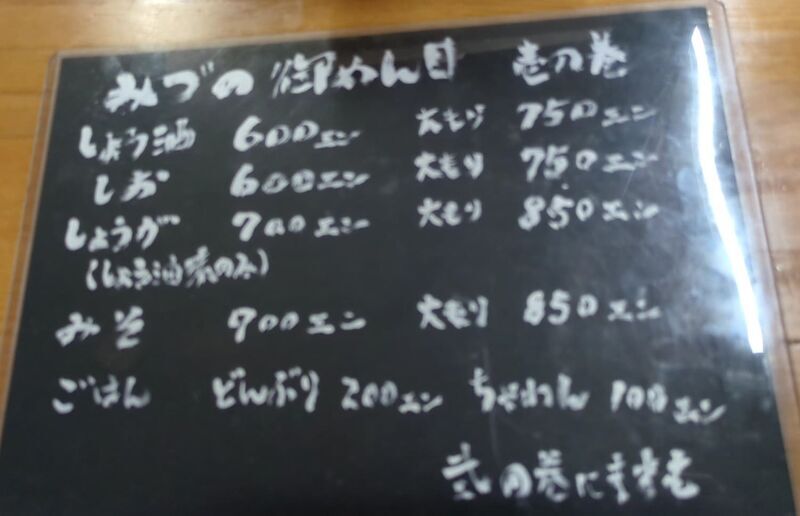 みづの御めん目 壱乃巻
しょう油 600エン 大もり 750エン
しお 600エン 大もり 750エン
しょうが 700エン 大もり 850エン
(しょう油味のみ)
みそ 700エン 大もり 850エン
ごはん どんぶり 200エン ちゃわん 100エン
弐の巻に